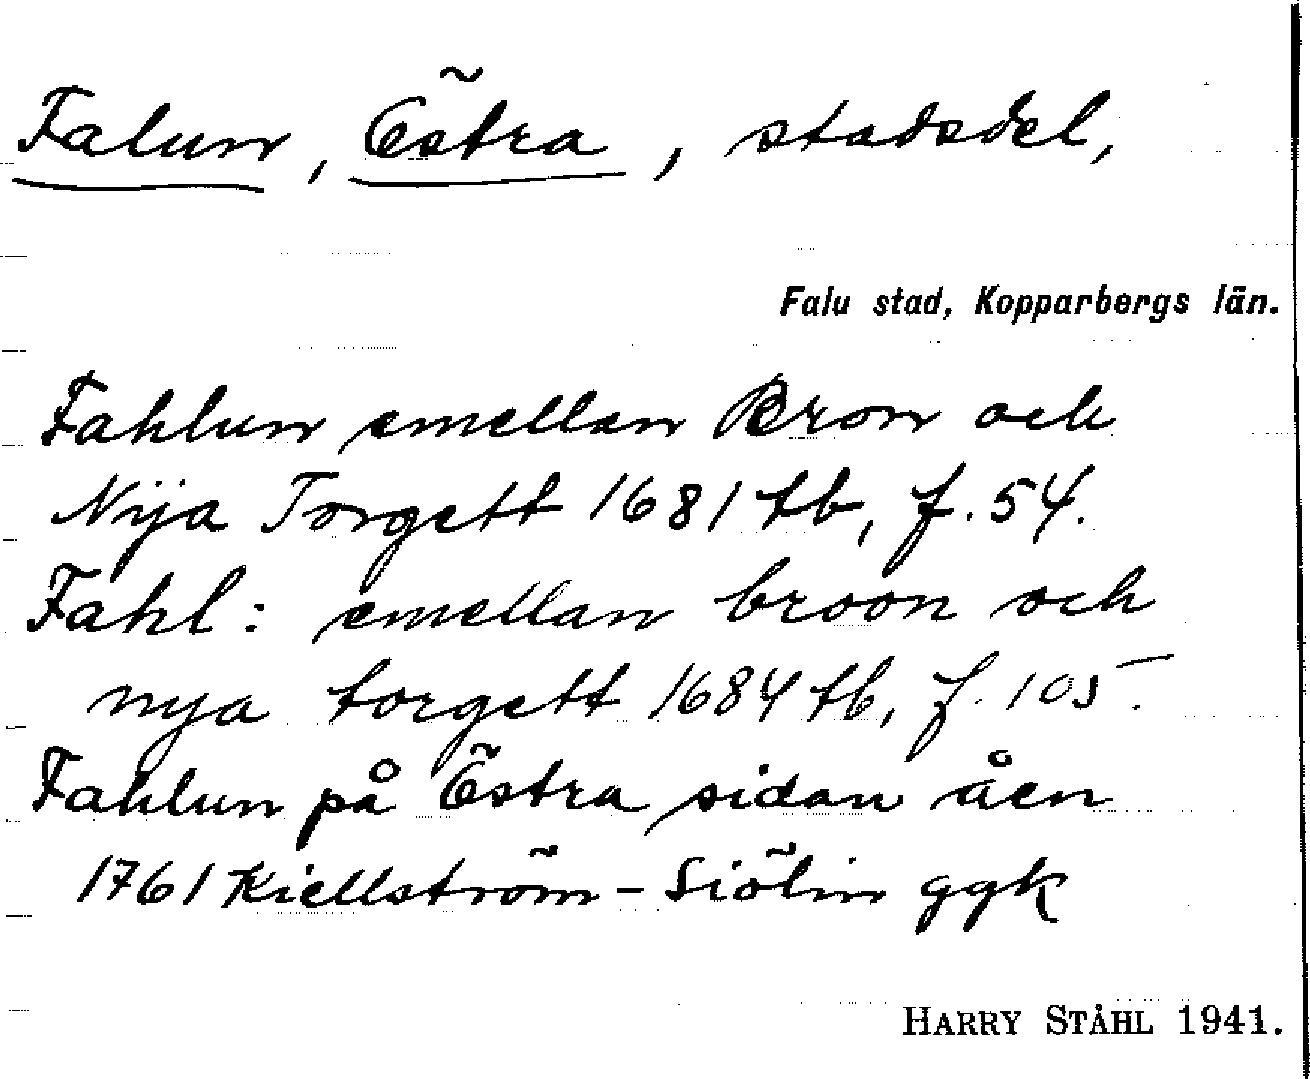 Falun, Östra, stadsdel,
Falu stad, Kopparbergs län.
Fahlun emellan Bron och
Nÿa Torgett 1681 tb, f. 54.
Fahl: emellan broon och
nya torgett 1684 tb, f. 105.
Fahlun på Östra sidan åen
1761 Kiellström - Siölin ggk
HARRY STÅHL 1941.